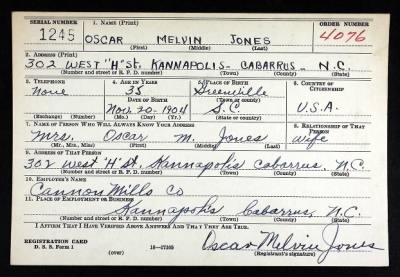 SERIAL NUMBER 1. NAME (Print) ORDER NUMBER
1245 OSCAR MELVIN JONES 4076
(First) (Middle) (Last)
2. ADDRESS (Print)
302 WEST "H" St. KANNAPOLIS - CABARRUS - N.C.
(Number and street or R. F. D. number) (Town) (County) (State)
3. TELEPHONE 4. AGE IN YEARS 5. PLACE OF BIRTH 6. COUNTRY OF CITIZENSHIP
None 35 Greenville U.S.A.
DATE OF BIRTH (Town or county)
Nov. 20 - 1904 S.C.
(Exchange) (Number) (Mo.) (Day) (Yr.) (State or country)
7. NAME OF PERSON WHO WILL ALWAYS KNOW YOUR ADDRESS 8. RELATIONSHIP OF THAT PERSON
Mrs. Oscar M. Jones wife
(Mr., Mrs., Miss) (First) (Middle) (Last)
9. ADDRESS OF THAT PERSON
302 West "H" St. Kannapolis Cabarrus, N.C.
(Number and street or R. F. D. number) (Town) (County) (State)
10. EMPLOYER'S NAME
Cannon Mills Co
11. PLACE OF EMPLOYMENT OR BUSINESS
Kannapolis Cabarrus, N.C.
(Number and street or R. F. D. number) (Town) (County) (State)
I AFFIRM THAT I HAVE VERIFIED ABOVE ANSWERS AND THAT THEY ARE TRUE.
REGISTRATION CARD
D. S. S. Form 1 (over) 16-17105 Oscar Melvin Jones
(Registrant's signature)